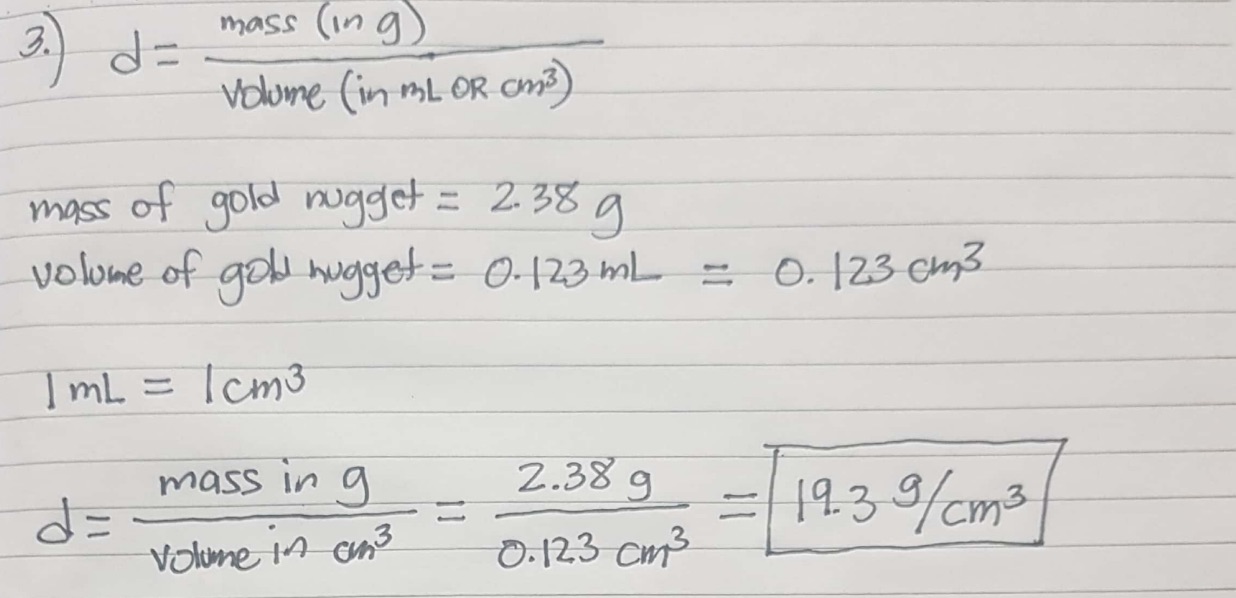 3.) d = mass (in g) / volume (in mL OR cm³)
mass of gold nugget = 2.38 g
volume of gold nugget = 0.123 mL = 0.123 cm³
1 mL = 1 cm³
d = mass in g / volume in cm³ = 2.38 g / 0.123 cm³ = 19.3 g/cm³